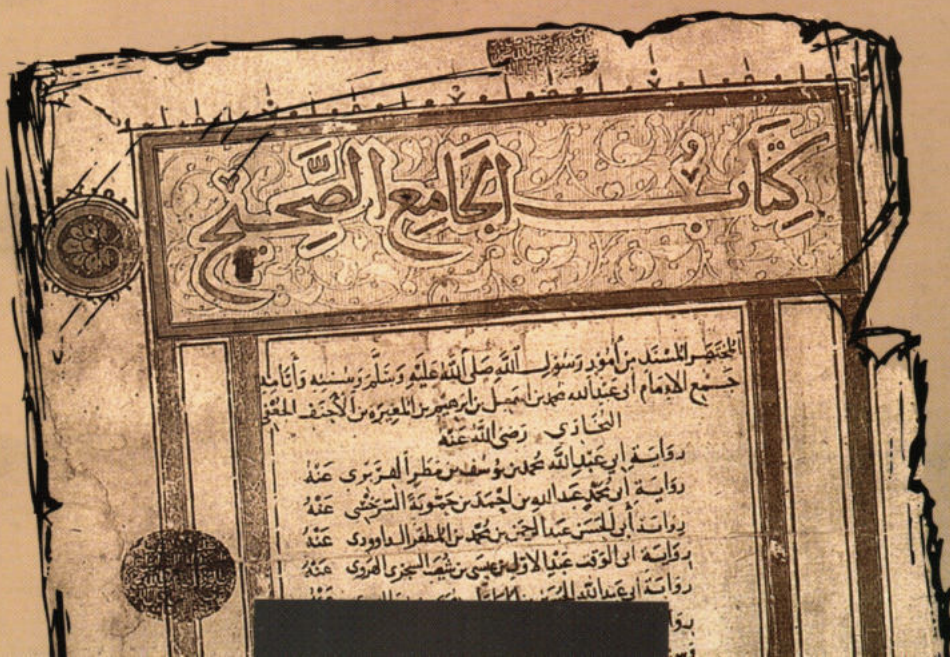 كِتَاب الجَامِع الصَّحِيح
المختصر المسند من أمور رسول الله صلى الله عليه وسلم وسننه وأيامه
جمع الإمام أبي عبد الله محمد بن اسمعيل بن ابرهيم بن المغيره بن الأحنف الجعفي
البخاري رضي الله عنه
رواية ابي عبد الله محمد بن يوسف بن مطر الفربري عنه
رواية أبي محمد عبد الله بن احمد بن حمويه السرخسي عنه
رواية أبي الحسن عبد الرحمن بن محمد بن المظفر الداوودي عنه
رواية ابي الوقت عبد الاول بن عيسى بن شعيب السجزي الهروي عنه
رواية ابي عبد الله الحسين بن